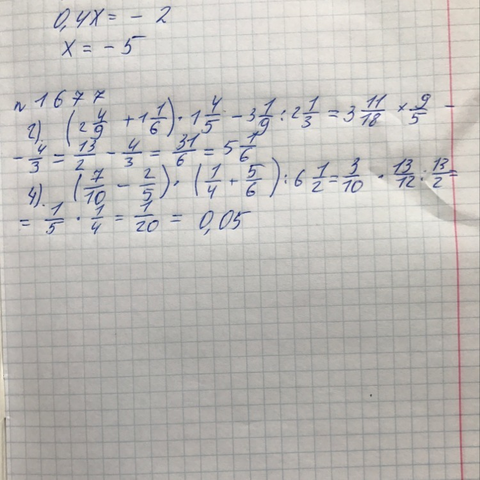 0,4x = - 2
x = - 5
№1677
2). (2 4/9 + 1 1/6) · 1 4/5 - 3 1/9 : 2 1/3 = 3 11/18 × 9/5 -
- 4/3 = 13/2 - 4/3 = 31/6 = 5 1/6
4). (7/10 - 2/5) · (1/4 + 5/6) : 6 1/2 = 3/10 · 13/12 : 13/2 =
= 1/5 · 1/4 = 1/20 = 0,05